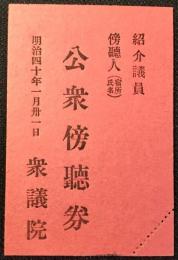 紹介議員
傍聽人（宿所氏名）
公衆傍聽券
明治四十年一月卅一日
衆議院